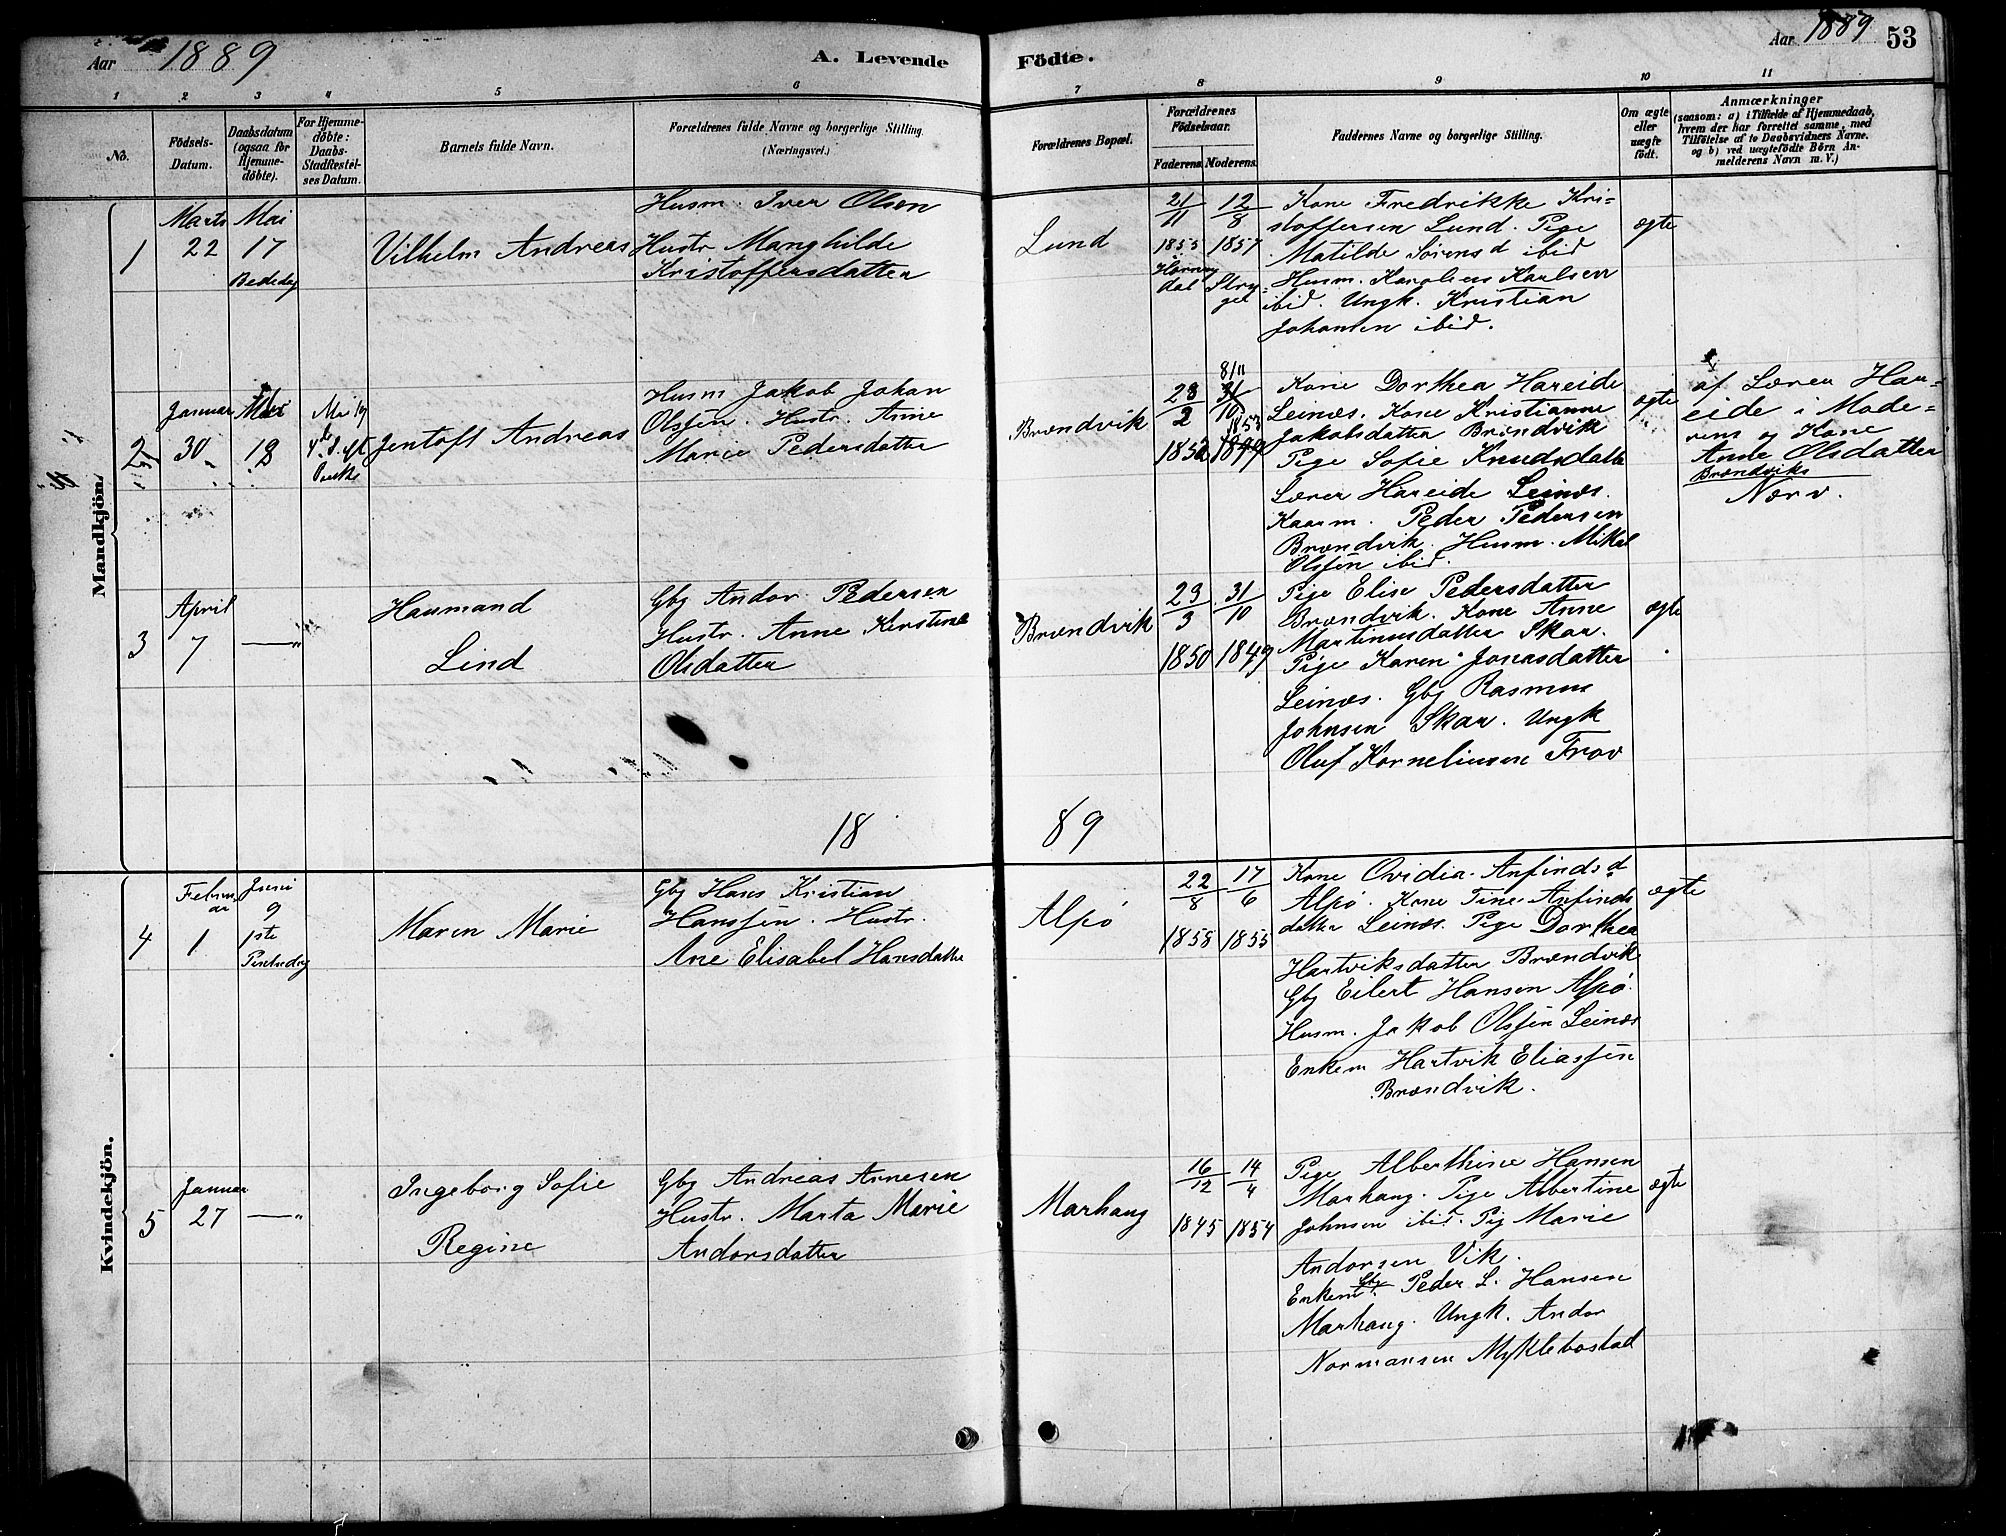 Aar 1889
A. Levende
Födte.
Aar 1889
53
1 2 3 4 5 6 7 8 9 10 11
No.
Födsels-
Datum.
Daabsdatum
(ogsaa for
Hjemme-
döbte).
For Hjemme-
döbte:
Daabs-
Stadfæstel-
ses Datum.
Barnets fulde Navn.
Forældrenes fulde Navne og borgerlige Stilling.
(Næringsvei.)
Forældrenes Bopæl.
Forældrenes
Födselsaar.
Faderens. Moderens.
Faddernes Navne og borgerlige Stilling.
Om ægte
eller
uægte
födt.
Anmærkninger
(saasom: a) i Tilfælde af Hjemmedaab,
hvem der har forrettet samme, med
Tilföielse af to Daabsvidners Navne,
og b) ved uægtefödte Börn An-
melderens Navn m. V.)
Mandkjön.
1
Marts
22
Mai
17
Bededag
Vilhelm Andreas
Husm. Iver Olsen
Hustr Manghilde
Kristoffersdatter
Lund
21/11
1853
Hornin
dal
12/8
1857
Stry
Kone Fredrikke Kri-
stoffersen Lund. Pige
Matilde Sørensd ibid
Husm. Karolius Karlsen
ibid. Ungk. Kristian
Johansen ibid.
ægte
2
Januar
30
Mai
12
Mai 19
4de S. eft
Paaske
Jentoft Andreas
Husm Jakob Johan
Olssen. Hustr. Anne
Marie Pedersdatter
Brændvik
23/2
1852
8/11
31/10
1853
1849
Kone Dorthea Hareide
Leinæs. Kone Kristianne
Jakobsdatter Brændvik
Pige Sofie Knudsdatte
Lærer Hareide Leinæs.
Kaarm. Peder Pedersen
Brændvik. Husm. Mikal
Olssen ibid.
ægte
af Lærer Har-
eide i Mode-
rens og Kone
Anne Olsdatter
Brændviks
Nærv.
3
April
7
—"—
Haumand
Lind
Gbg Andor Pedersen
Hustr. Anne Kirstine
Olsdatter
Brændvik
29/3
1850
31/10
1849
Pige Elise Pedersdatter
Brændvik. Kone Anne
Martinusdatter Skar.
Pige Karen Jonasdatter
Leinæs. Gbg Rasmus
Johnsen Skar. Ungk
Oluf Korneliussen Trov
ægte
18 89
Kvindekjön.
4
Februar
1
Juni
9
1ste
Pintsedag
Maren Marie
Gbg Hans Kristian
Hanssen. Hustr.
Ane Elisabet Hansdatter
Alpø
22/8
1858
17/6
1855
Kone Ovidia Anfindsd
Alpø. Kone Tine Anfinds
datter Leinæs. Pige Dorthea
Hartviksdatter Brændvik
Gbg Eilert Hansen Alpø.
Husm. Jakob Olssen Leinæs
Enkem Hartvik Eliassen
Brændvik.
ægte
5
Januar
27
—"—
Ingeborg Sofie
Regine
Gbg Andreas Arnesen
Hustr. Marta Marie
Andorsdatter
Marhaug
16/12
1845
14/4
1854
Pige Alberthine Hansen
Marhaug. Pige Albertine
Johnsen ibid. Pig Marie
Andorsen Vik.
Enkem Gbg Peder L. Hansen
Marhaug. Ungk. Andor
Normansen Myklebostad
ægte